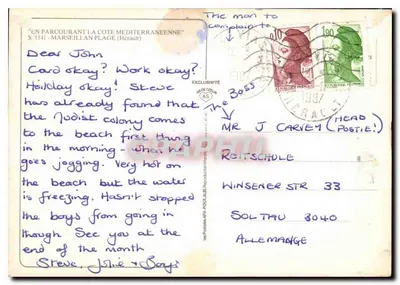 "EN PARCOURANT LA COTE MEDITERRANEENNE"
S 3341 - MARSEILLAN PLAGE (Hérault)
The man to
complain to
Dear John
Card okay? Work okay?
Holiday okay! Steve
has already found that
the Nudist colony comes
to the beach first thing
in the morning - when he
goes jogging. Very hot on
the beach but the water
is freezing. Hasn't stopped
the boys from going in
though See you at the
end of the month
Steve, Julie + Boys
EXCLUSIVITE
The Boss
0,10
1,80
MR J CARVEY (HEAD
POSTIE!)
REITSCHULE
WINSENER STR 33
SOLTAU 3040
ALLEMANGE